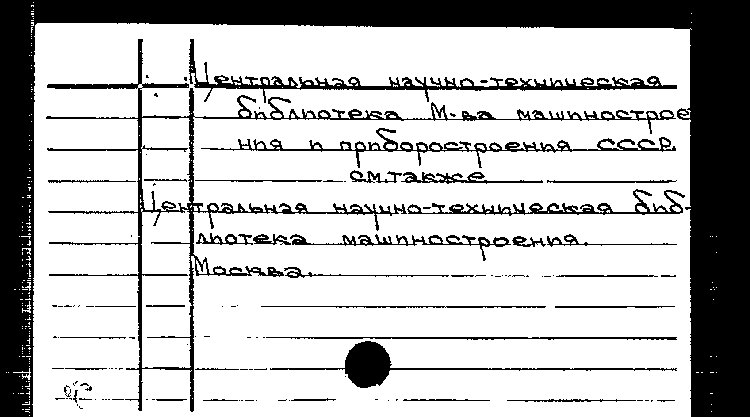 Центральная научно-техническая
библиотека М-ва машинострое
ния и приборостроения СССР.
см.также
Центральная научно-техническая биб-
лиотека машиностроения.
Москва.